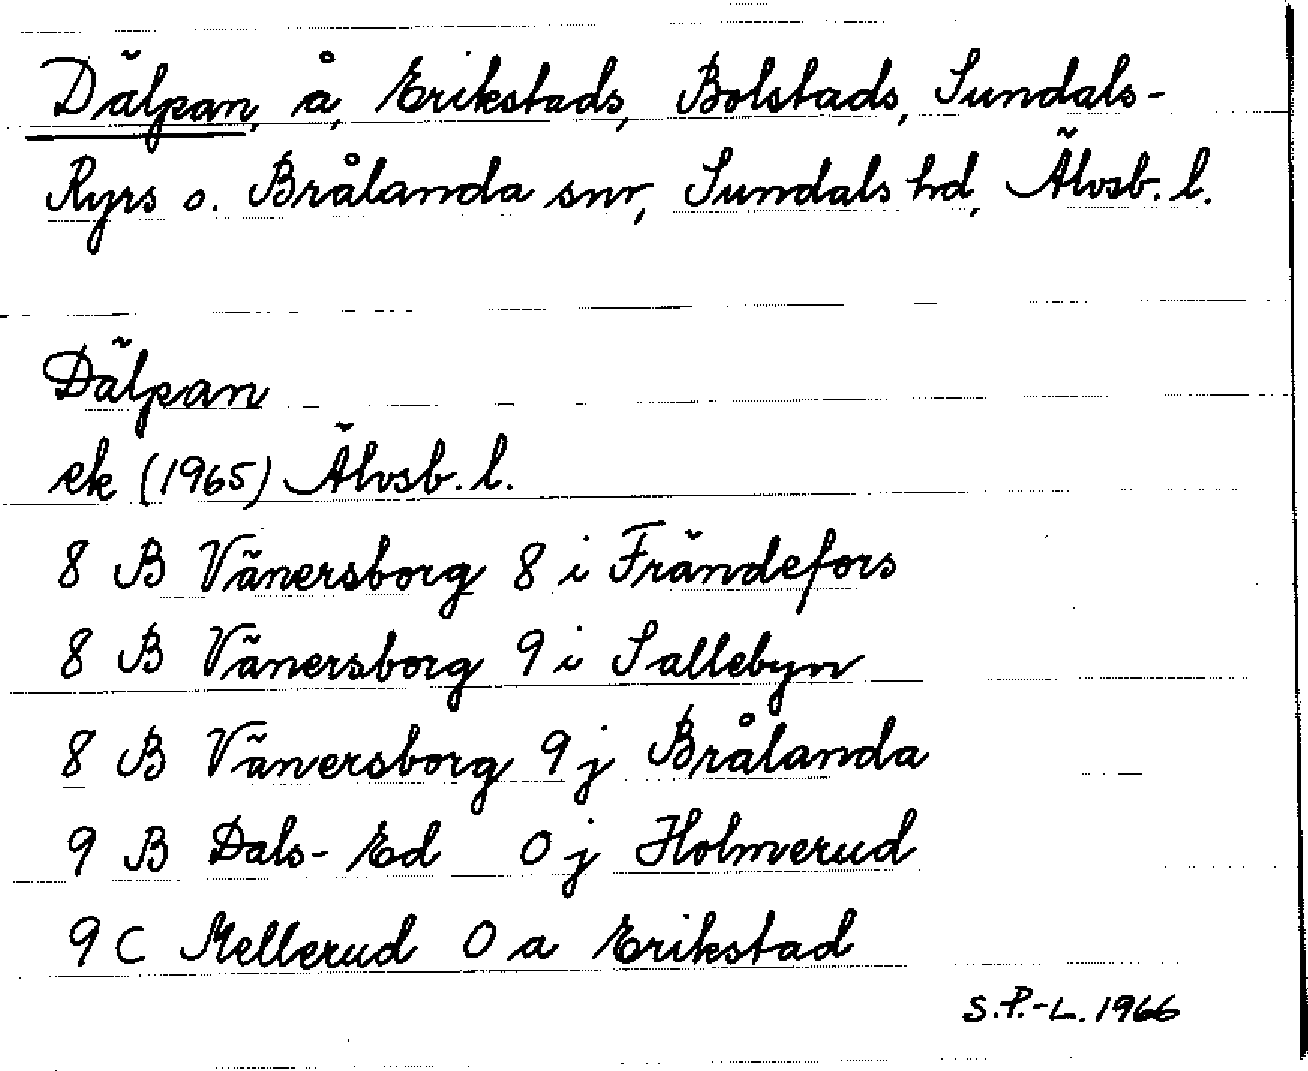 Dälpan, å, Erikstads, Bolstads, Sundals-
Ryrs o. Brålanda snr, Sundals hd, Älvsb. l.
Dälpan
ek (1965) Älvsb. l.
8 B Vänersborg 8 i Frändefors
8 B Vänersborg 9 i Sallebyn
8 B Vänersborg 9 j Brålanda
9 B Dals-Ed 0 j Holmerud
9 C Mellerud 0 a Erikstad
S.P.-L. 1966